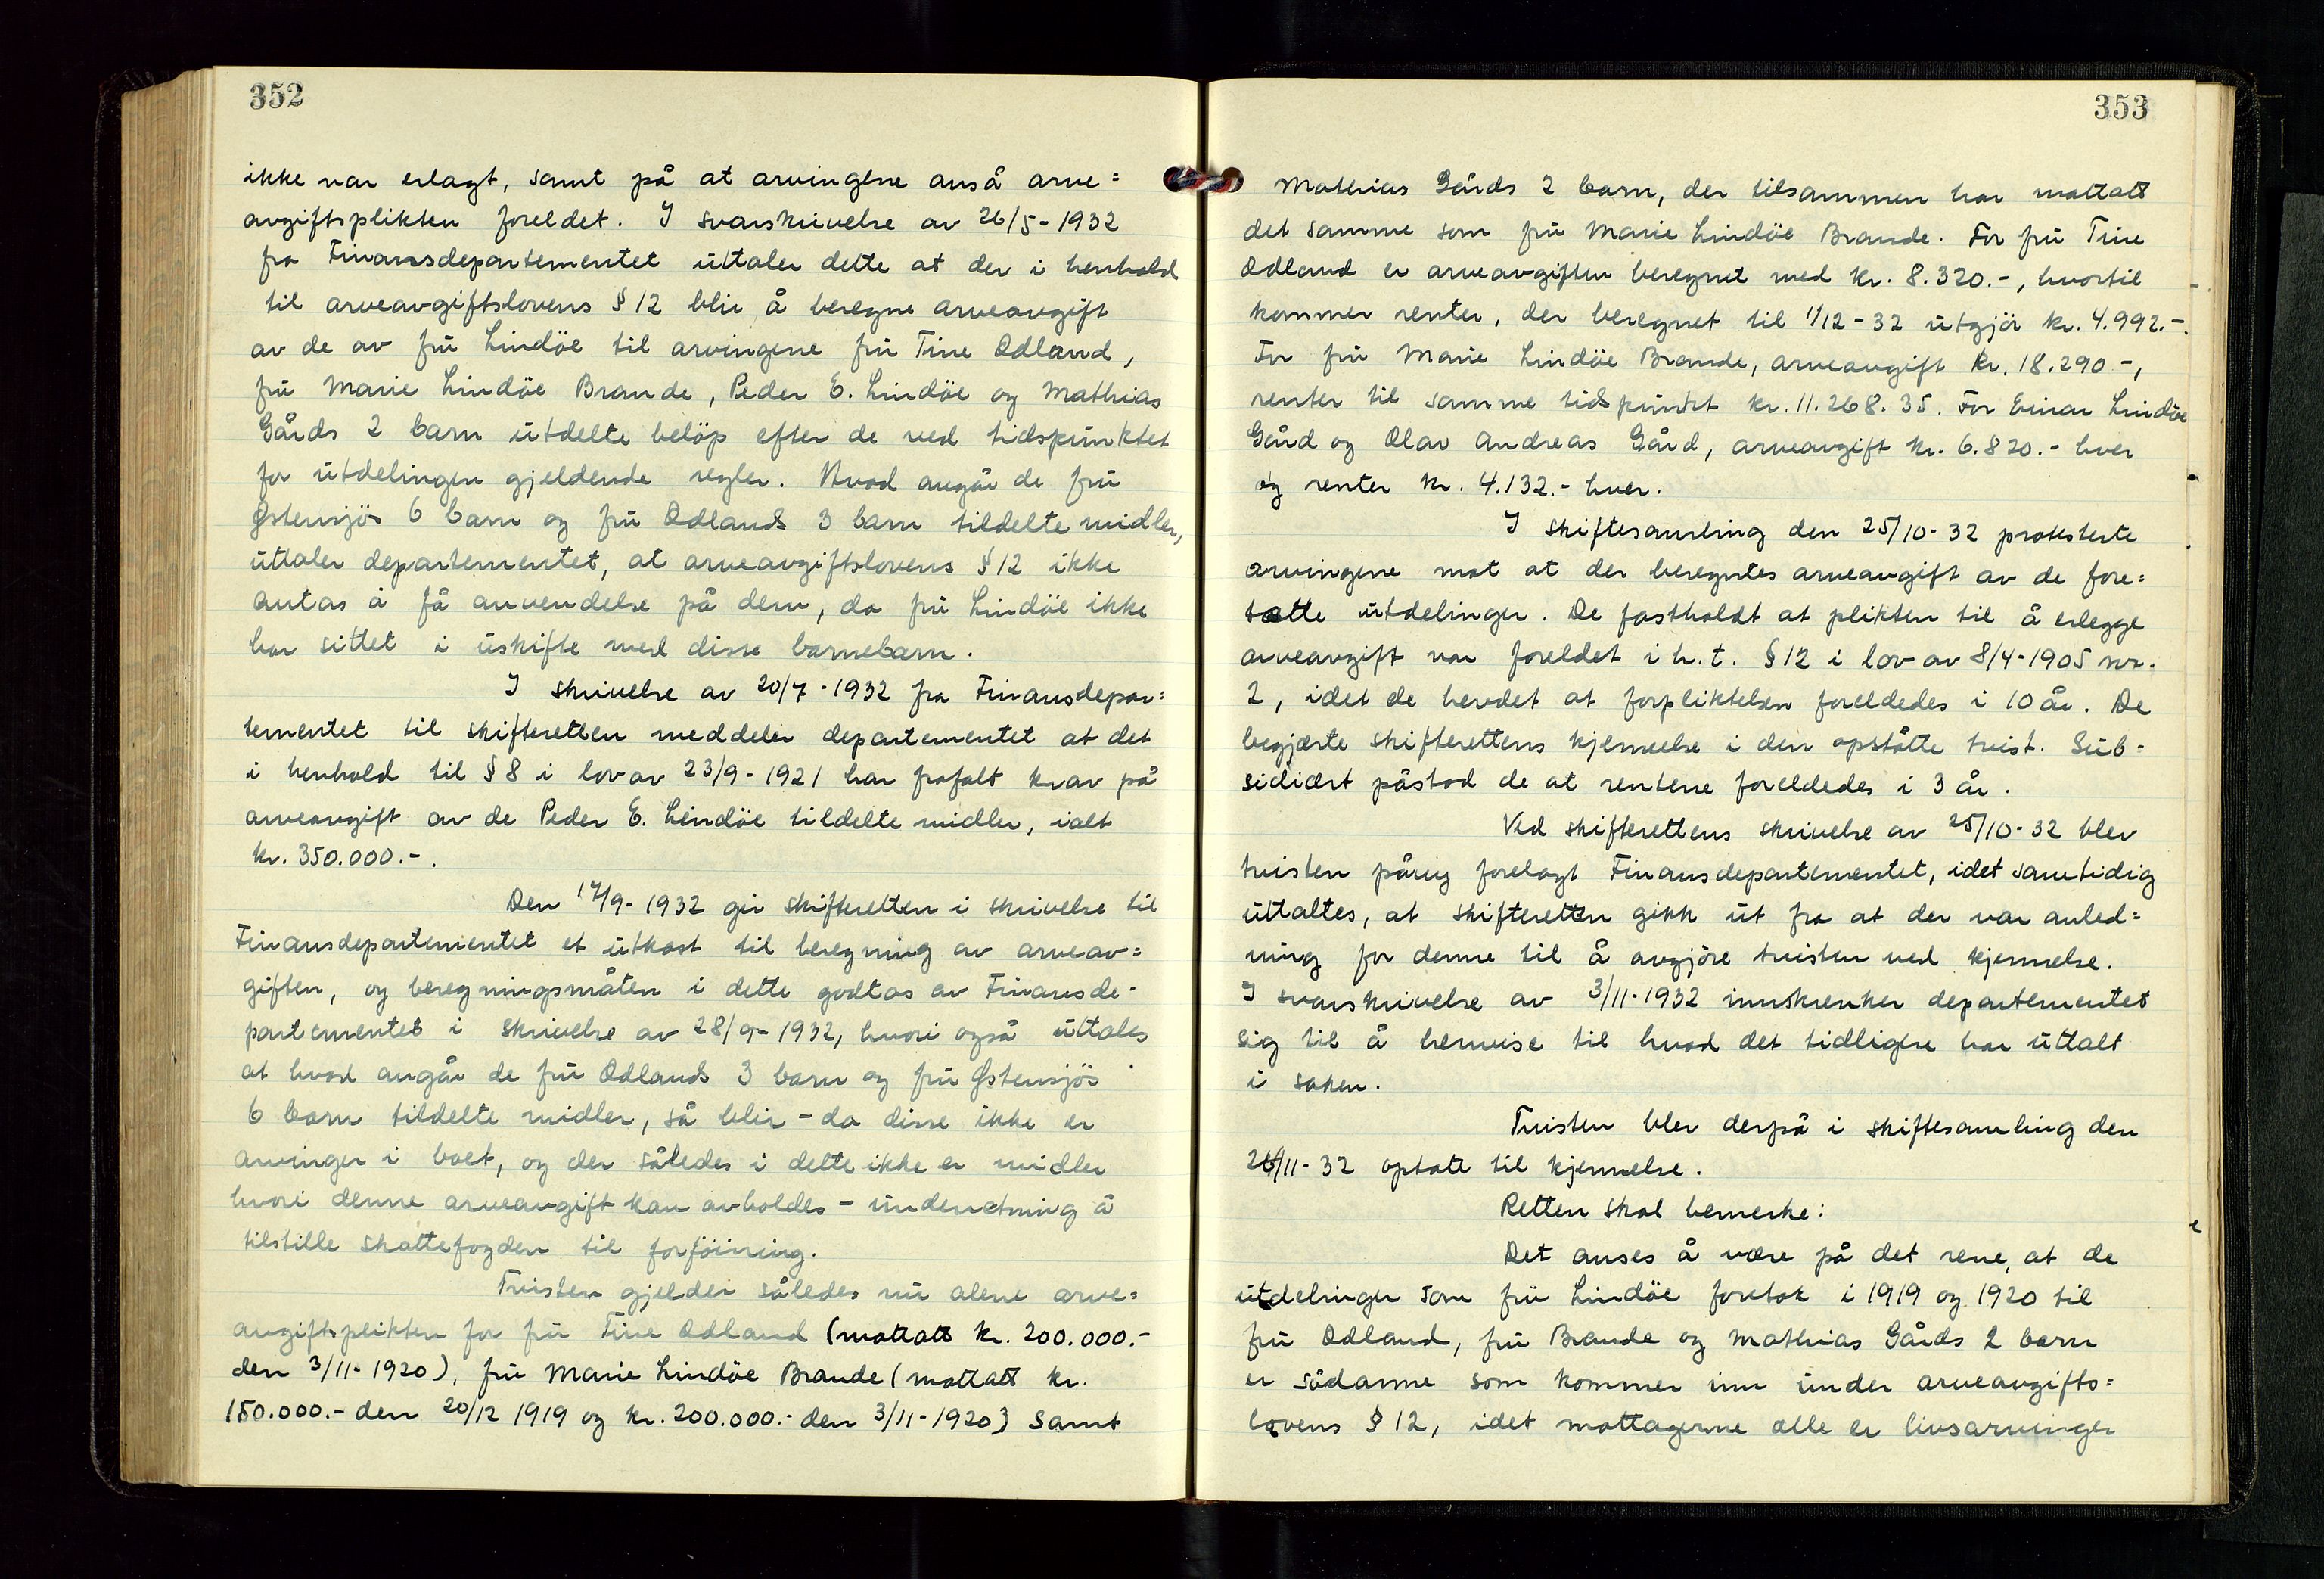 352
ikke var erlagt, samt på at arvingene anså arve=
avgiftsplikten foreldet. I svarskrivelse av 26/5-1932
fra Finansdepartementet uttaler dette at der i henhold
til arveavgiftslovens § 12 blir å beregne arveavgift
av de av fru Lindöe til arvingene fru Tine Odland,
fru Marie Lindöe Brande, Peder E. Lindöe og Mathias
Gårds 2 barn utdelte belöp efter de ved tidspunktet
for utdelingen gjeldende regler. Hvad angår de fru
Østensjös 6 barn og fru Odlands 3 barn tildelte midler,
uttaler departementet, at arveavgiftslovens § 12 ikke
antas å få anvendelse på dem, da fru Lindöe ikke
har sittet i uskifte med disse barnebarn.
I skrivelse av 20/7-1932 fra Finansdepar=
tementet til skifteretten meddeler departementet at det
i henhold til § 8 i lov av 23/9-1921 har frafalt krav på
arveavgift av de Peder E. Lindöe tildelte midler, ialt
kr. 350.000.-.
Den 17/9-1932 gir skifteretten i skrivelse til
Finansdepartementet et utkast til beregning av arveav=
giften, og beregningsmåten i dette godtas av Finansde-
partementet i skrivelse av 28/9-1932, hvori også uttales
at hvad angår de fru Odlands 3 barn og fru Østensjös
6 barn tildelte midler, så blir - da disse ikke er
arvinger i boet, og der således i dette ikke er midler
hvori denne arveavgift kan avholdes - underretning å
tilstille skattefogden til forföining.
Tvisten gjelder således nu alene arve=
avgiftsplikten for fru Tine Odland (mottatt kr. 200.000.-
den 3/11-1920), fru Marie Lindöe Brande (mottatt kr.
150.000.- den 20/12 1919 og kr. 200.000.- den 3/11-1920) samt
353
Mathias Gårds 2 barn, der tilsammen har mottatt
det samme som fru Marie Lindöe Brande. For fru Tine
Odland er arveavgiften beregnet med kr. 8.320.-, hvortil
kommer renter, der beregnet til 1/12-32 utgjör kr. 4.992.-.
For fru Marie Lindöe Brande, arveavgift kr. 18.290.-,
renter til samme tidspunkt kr. 11.268.35. For Einar Lindöe
Gård og Olav Andreas Gård, arveavgift kr. 6.820.- hver
og renter kr. 4.132.- hver.
I skiftesamling den 25/10-32 protesterte
arvingene mot at der beregntes arveavgift av de fore=
tatte utdelinger. De fastholdt at plikten til å erlegge
arveavgift var foreldet i h.t. § 12 i lov av 8/4-1905 nr.
2, idet de hevdet at forpliktelsen foreldedes i 10 år. De
begjærte skifterettens kjennelse i den opståtte tvist. Sub-
sidiært påstod de at rentene foreldedes i 3 år.
Ved skifterettens skrivelse av 25/10-32 blev
tvisten påny forelagt Finansdepartementet, idet samtidig
uttaltes, at skifteretten gikk ut fra at der var anled=
ning for denne til å avgjöre tvisten ved kjennelse.
I svarskrivelse av 3/11-1932 innskrenker departementet
sig til å henvise til hvad det tidligere har uttalt
i saken.
Tvisten blev derpå i skiftesamling den
/11-32 optatt til kjennelse.
Retten skal bemerke:
Det anses å være på det rene, at de
utdelinger som fru Lindöe foretok i 1919 og 1920 til
fru Odland, fru Brande og Mathias Gårds 2 barn
er sådanne som kommer inn under arveavgifts=
lovens § 12, idet mottagerne alle er livsarvinger